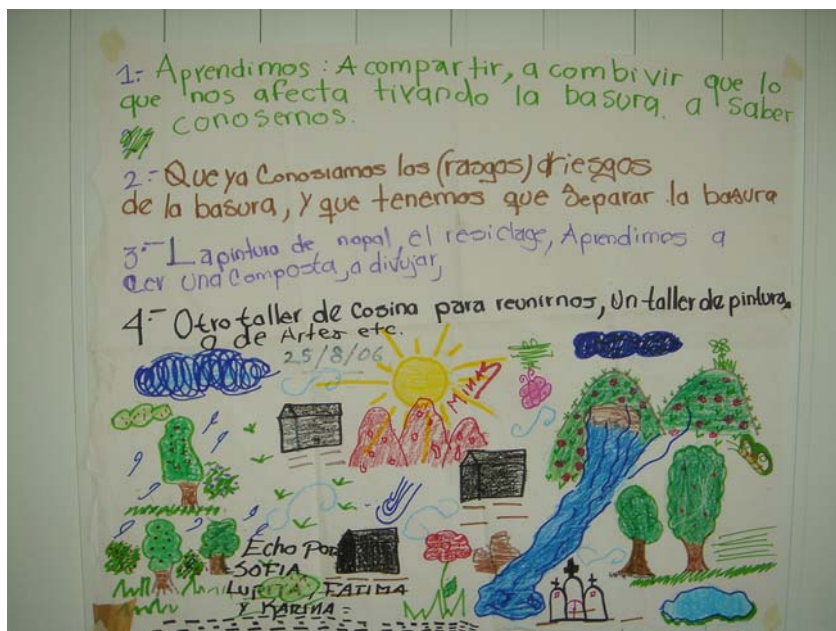 1.- Aprendimos: A compartir, a combivir que lo
que nos afecta tirando la basura. a saber
conosernos.
2.- Que ya Conosiamos los (rasgos) riesgos
de la basura, y que tenemos que separar la basura
3.- La pintura de nopal, el resiclage, Aprendimos a
cer una composta, a divujar,
4.- Otro taller de Cosina para reunirnos, Un taller de pintura,
o de Artes etc.
25/8/06
MINAS
Echo Por
SOFIA
LUPITA, FATIMA
Y KARINA